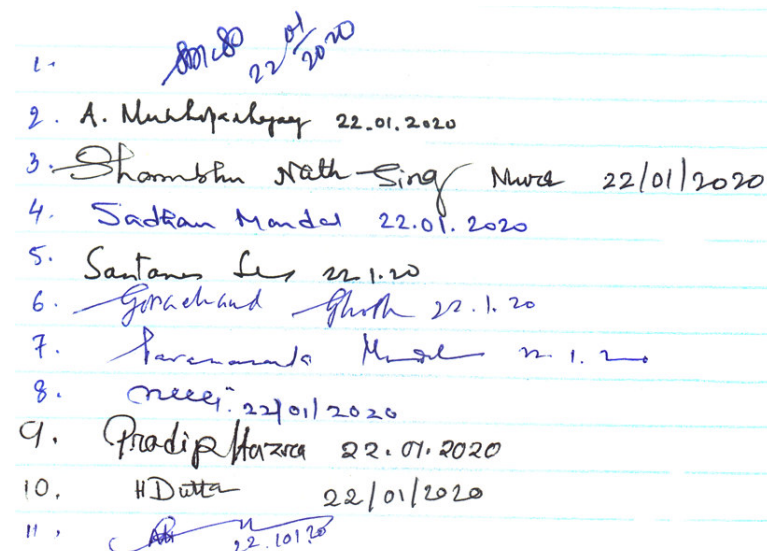 1. 22/01/2020
2. A. Mukhopadhyay 22.01.2020
3. Shambhu Nath Sing 22/01/2020
4. Sadhan Mandal 22.01.2020
5. Santanu 22.1.20
6. Gorachand Ghosh 22.1.20
7. 22.1.20
8. 22/01/2020
9. Pradip Hazra 22.01.2020
10. H Dutta 22/01/2020
11.